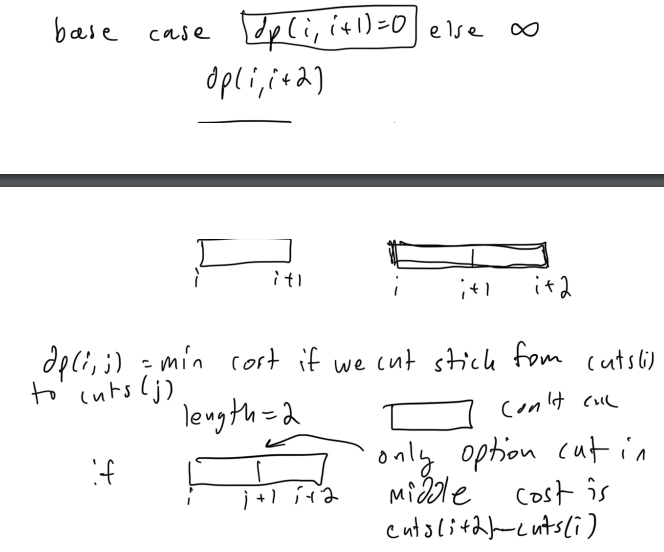 base case dp(i, i+1)=0 else ∞
dp(i, i+2)
i i+1 i i+1 i+2
dp(i, j) = min cost if we cut stick from cuts(i)
to cuts(j)
length=2 can't cut
only option cut in
if i i+1 i+2 middle cost is
cuts(i+2)-cuts(i)